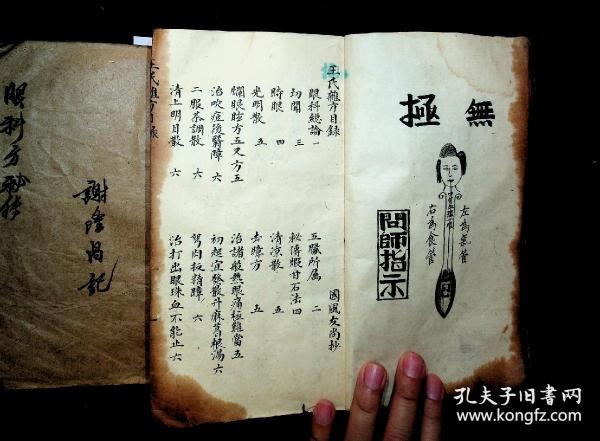 無極
左為氣管
右為食管
問師指示
王氏雜方目錄
國風友尚抄
眼科總論 一
五臟所屬 二
切開 三
秘傳眼甘石法 四
時眼 四
清凉散 五
光明散 五
去障方 五
爛眼眩方 五 又方 五
治諸般熱眼痛極難當 五
治吹痘後翳障 六
初起宜發散升麻葛根湯 六
二服茶調散 六
努肉板睛障 六
清上明目散 六
治打出眼珠血不能止 六
王氏雜方目錄
眼科方
謝
記
孔夫子旧书网
www.kongfz.com